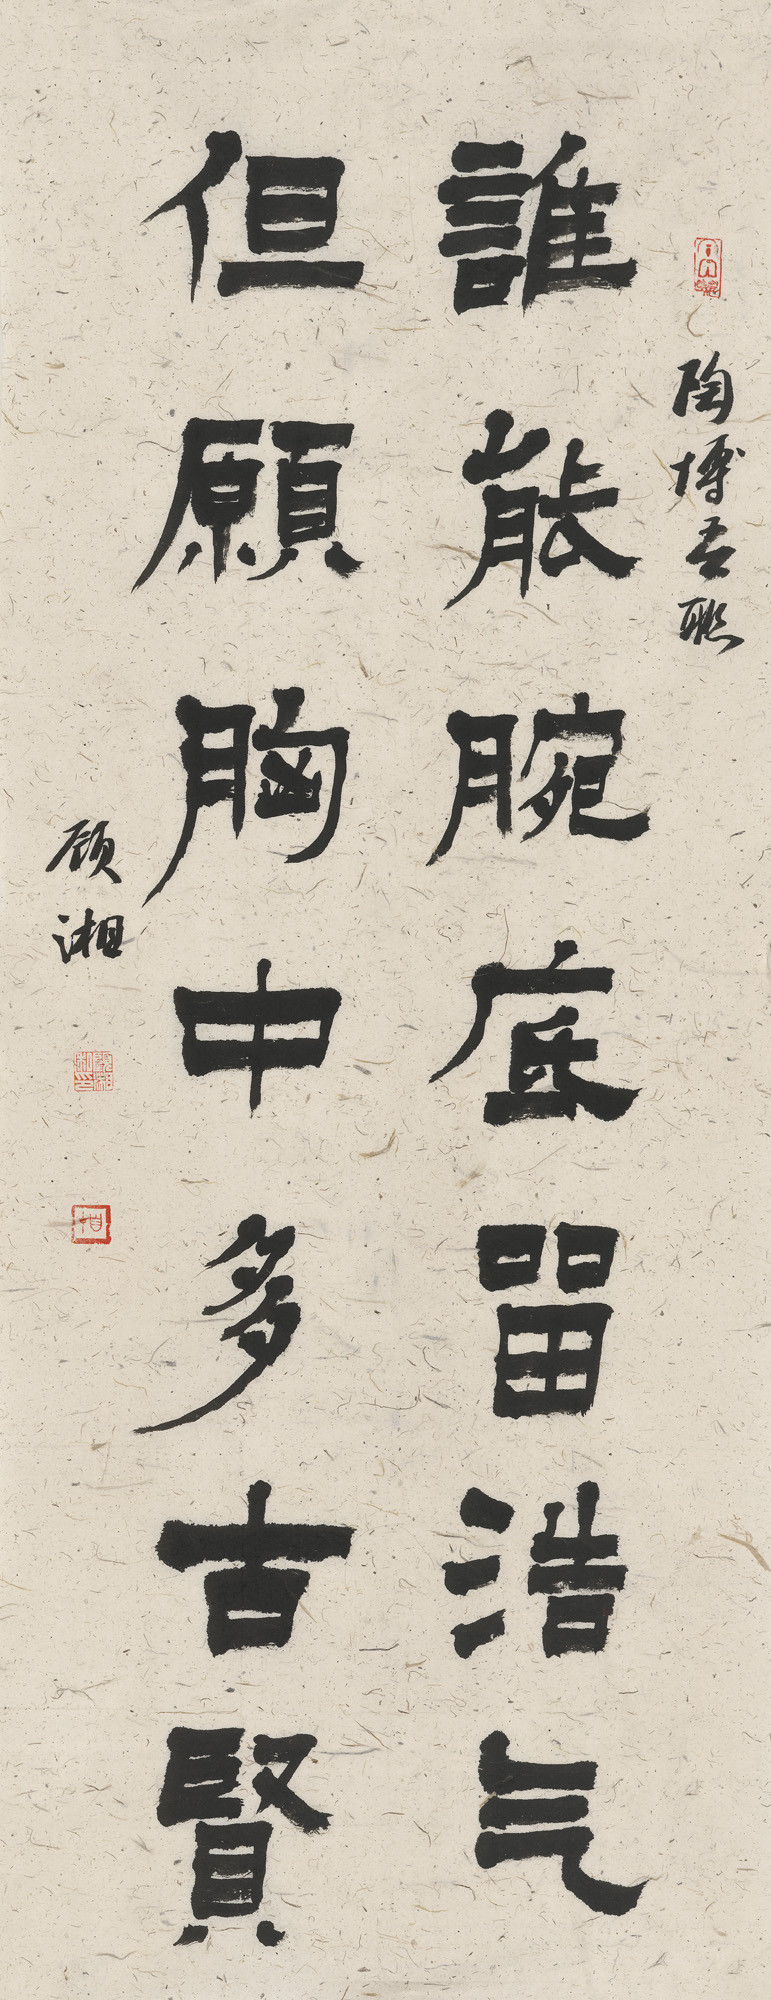 陶博吾聯
誰能腕底留浩气
但願胸中多古賢
顾湘